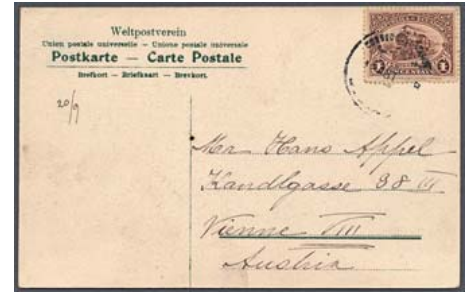 Weltpostverein
Union postale universelle — Unione postale universale
Postkarte — Carte Postale
Brefkort — Briefkaart — Brevkort.
20/9
1
1
Mer Hans Appel
Kandlgasse 38 III
Vienne VIII
Austria